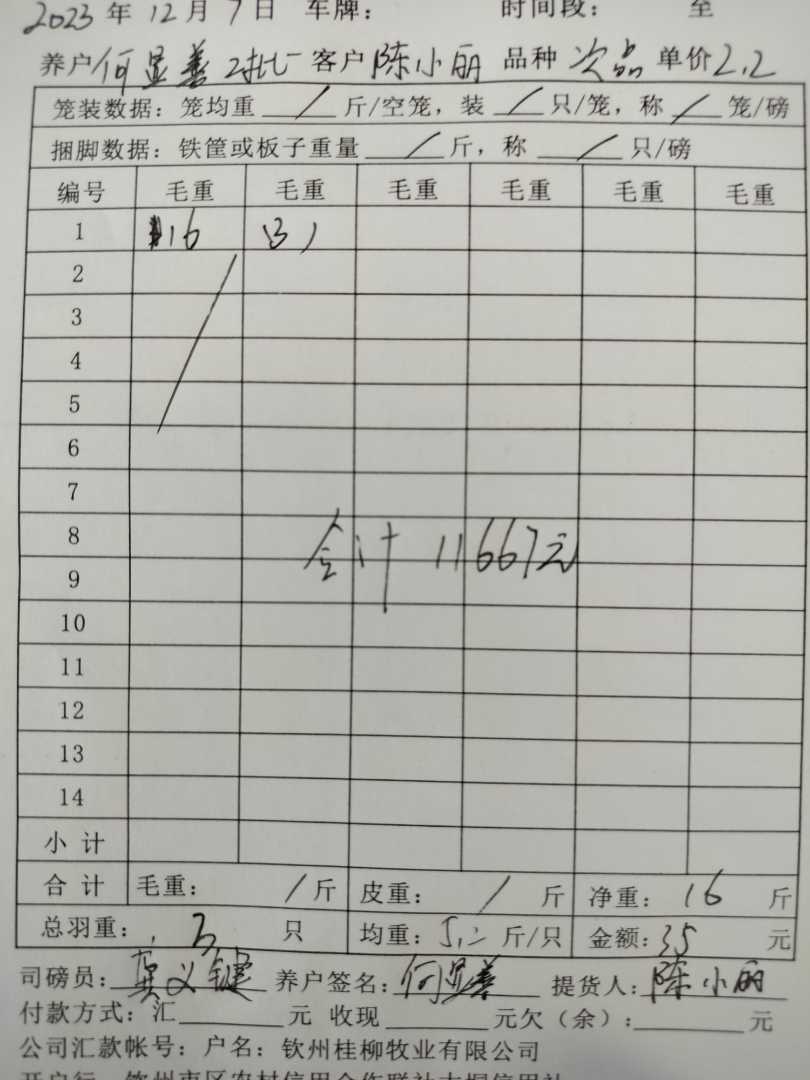 2023年12月7日 车牌: 时间段: 至
养户 何显善2批 客户 陈小丽 品种 次品 单价2.2
笼装数据: 笼均重 / 斤/空笼, 装 / 只/笼, 称 / 笼/磅
捆脚数据: 铁筐或板子重量 / 斤, 称 / 只/磅
编号 毛重 毛重 毛重 毛重 毛重 毛重
1 16 (3)
2
3
4
5
6
7
8
合计 11667元
9
10
11
12
13
14
小计
合计 毛重: / 斤 皮重: / 斤 净重: 16 斤
总羽重: 3 只 均重: 5.2 斤/只 金额: 35 元
司磅员: 莫义键 养户签名: 何显善 提货人: 陈小丽
付款方式: 汇 元 收现 元欠(余): 元
公司汇款帐号: 户名: 钦州桂柳牧业有限公司